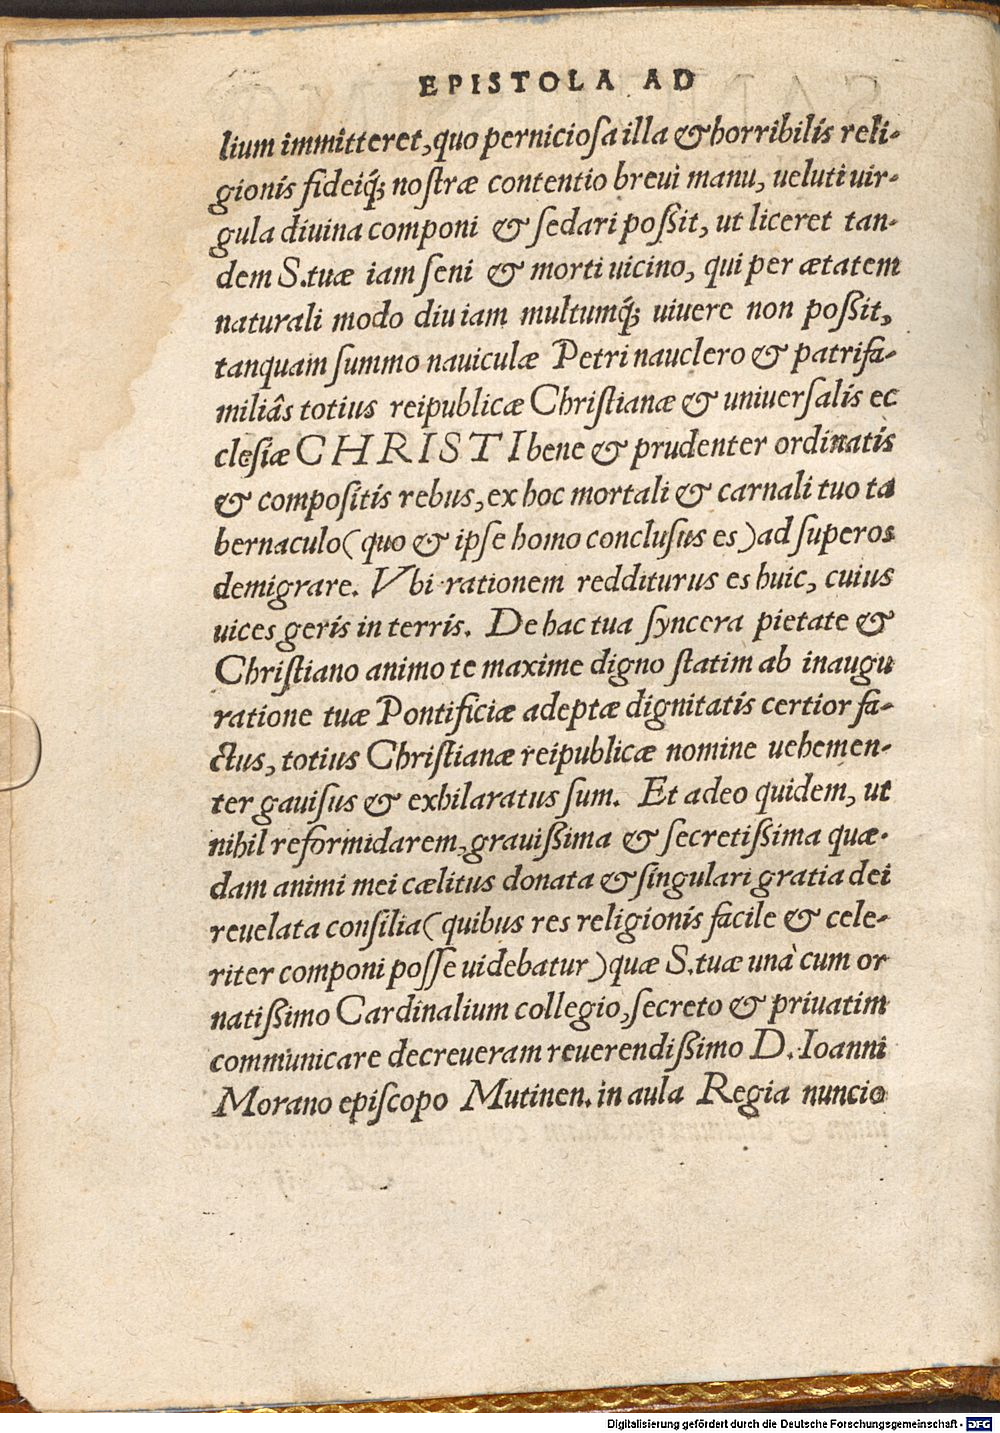 EPISTOLA AD
lium immitteret, quo perniciosa illa & horribilis reli-
gionis fideiq́; nostræ contentio breui manu, ueluti uir-
gula diuina componi & sedari possit, ut liceret tan-
dem S. tuæ iam seni & morti uicino, qui per ætatem
naturali modo diu iam multumq́; uiuere non possit,
tanquam summo nauiculæ Petri nauclero & patrifa-
miliâs totius reipublicæ Christianæ & uniuersalis ec
clesiæ CHRISTI bene & prudenter ordinatis
& compositis rebus, ex hoc mortali & carnali tuo ta
bernaculo (quo & ipse homo conclusus es) ad superos
demigrare. Vbi rationem redditurus es huic, cuius
uices geris in terris. De hac tua syncera pietate &
Christiano animo te maxime digno statim ab inaugu
ratione tuæ Pontificiæ adeptæ dignitatis certior fa-
ctus, totius Christianæ reipublicæ nomine uehemen-
ter gauisus & exhilaratus sum. Et adeo quidem, ut
nihil reformidarem, grauissima & secretissima quæ-
dam animi mei cælitus donata & singulari gratia dei
reuelata consilia (quibus res religionis facile & cele-
riter componi posse uidebatur) quæ S. tuæ unà cum or
natissimo Cardinalium collegio, secreto & priuatim
communicare decreueram reuerendissimo D. Ioanni
Morano episcopo Mutinen. in aula Regia nuncio
Digitalisierung gefördert durch die Deutsche Forschungsgemeinschaft - DFG